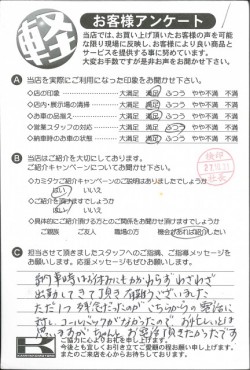 軽
お客様アンケート
当店では、お買い上げ頂いたお客様の声を可能
な限り現場に反映し、お客様により良い商品と
サービスを提供する事に努めています。
大変お手数ですが是非お声をお聞かせ下さい。
A 当店を実際にご利用になった印象をお聞かせ下さい。
◇店の印象 大満足 満足 ふつう やや不満 不満
◇店内・展示場の清掃 大満足 満足 ふつう やや不満 不満
◇お車の品揃え 大満足 満足 ふつう やや不満 不満
◇営業スタッフの対応 大満足 満足 ふつう やや不満 不満
◇納車時のお車の状態 大満足 満足 ふつう やや不満 不満
B 当店はご紹介を大切にしております。
ご紹介キャンペーンについてお聞かせ下さい。
◇カミタケご紹介キャンペーンのご説明はありましたでしょうか
はい いいえ
◇ご紹介を頂けますでしょうか
はい いいえ
◇具体的にご紹介頂ける方とのご関係をお聞かせ頂けますでしょうか
ご親族 ご友人 職場の方 機会があれば紹介したい
C 担当させて頂きましたスタッフへのご指摘、ご指導メッセージを
お願いします。応援メッセージもぜひお願いします。
契約時はお休みにもかかわらずわざわざ
出勤してきて頂き有難うございました
ただ1つ残念だったのが こちらからの電話に
対し、コールバックがなかったので、お忙しいとは
思いますが ちゃんと お電話頂きたかったです
K
ご協力に心よりお礼を申し上げます。
今後とも宜しくお引き立てご愛顧の程お願い申し上げます。
またのご来店を心からお待ちしております。